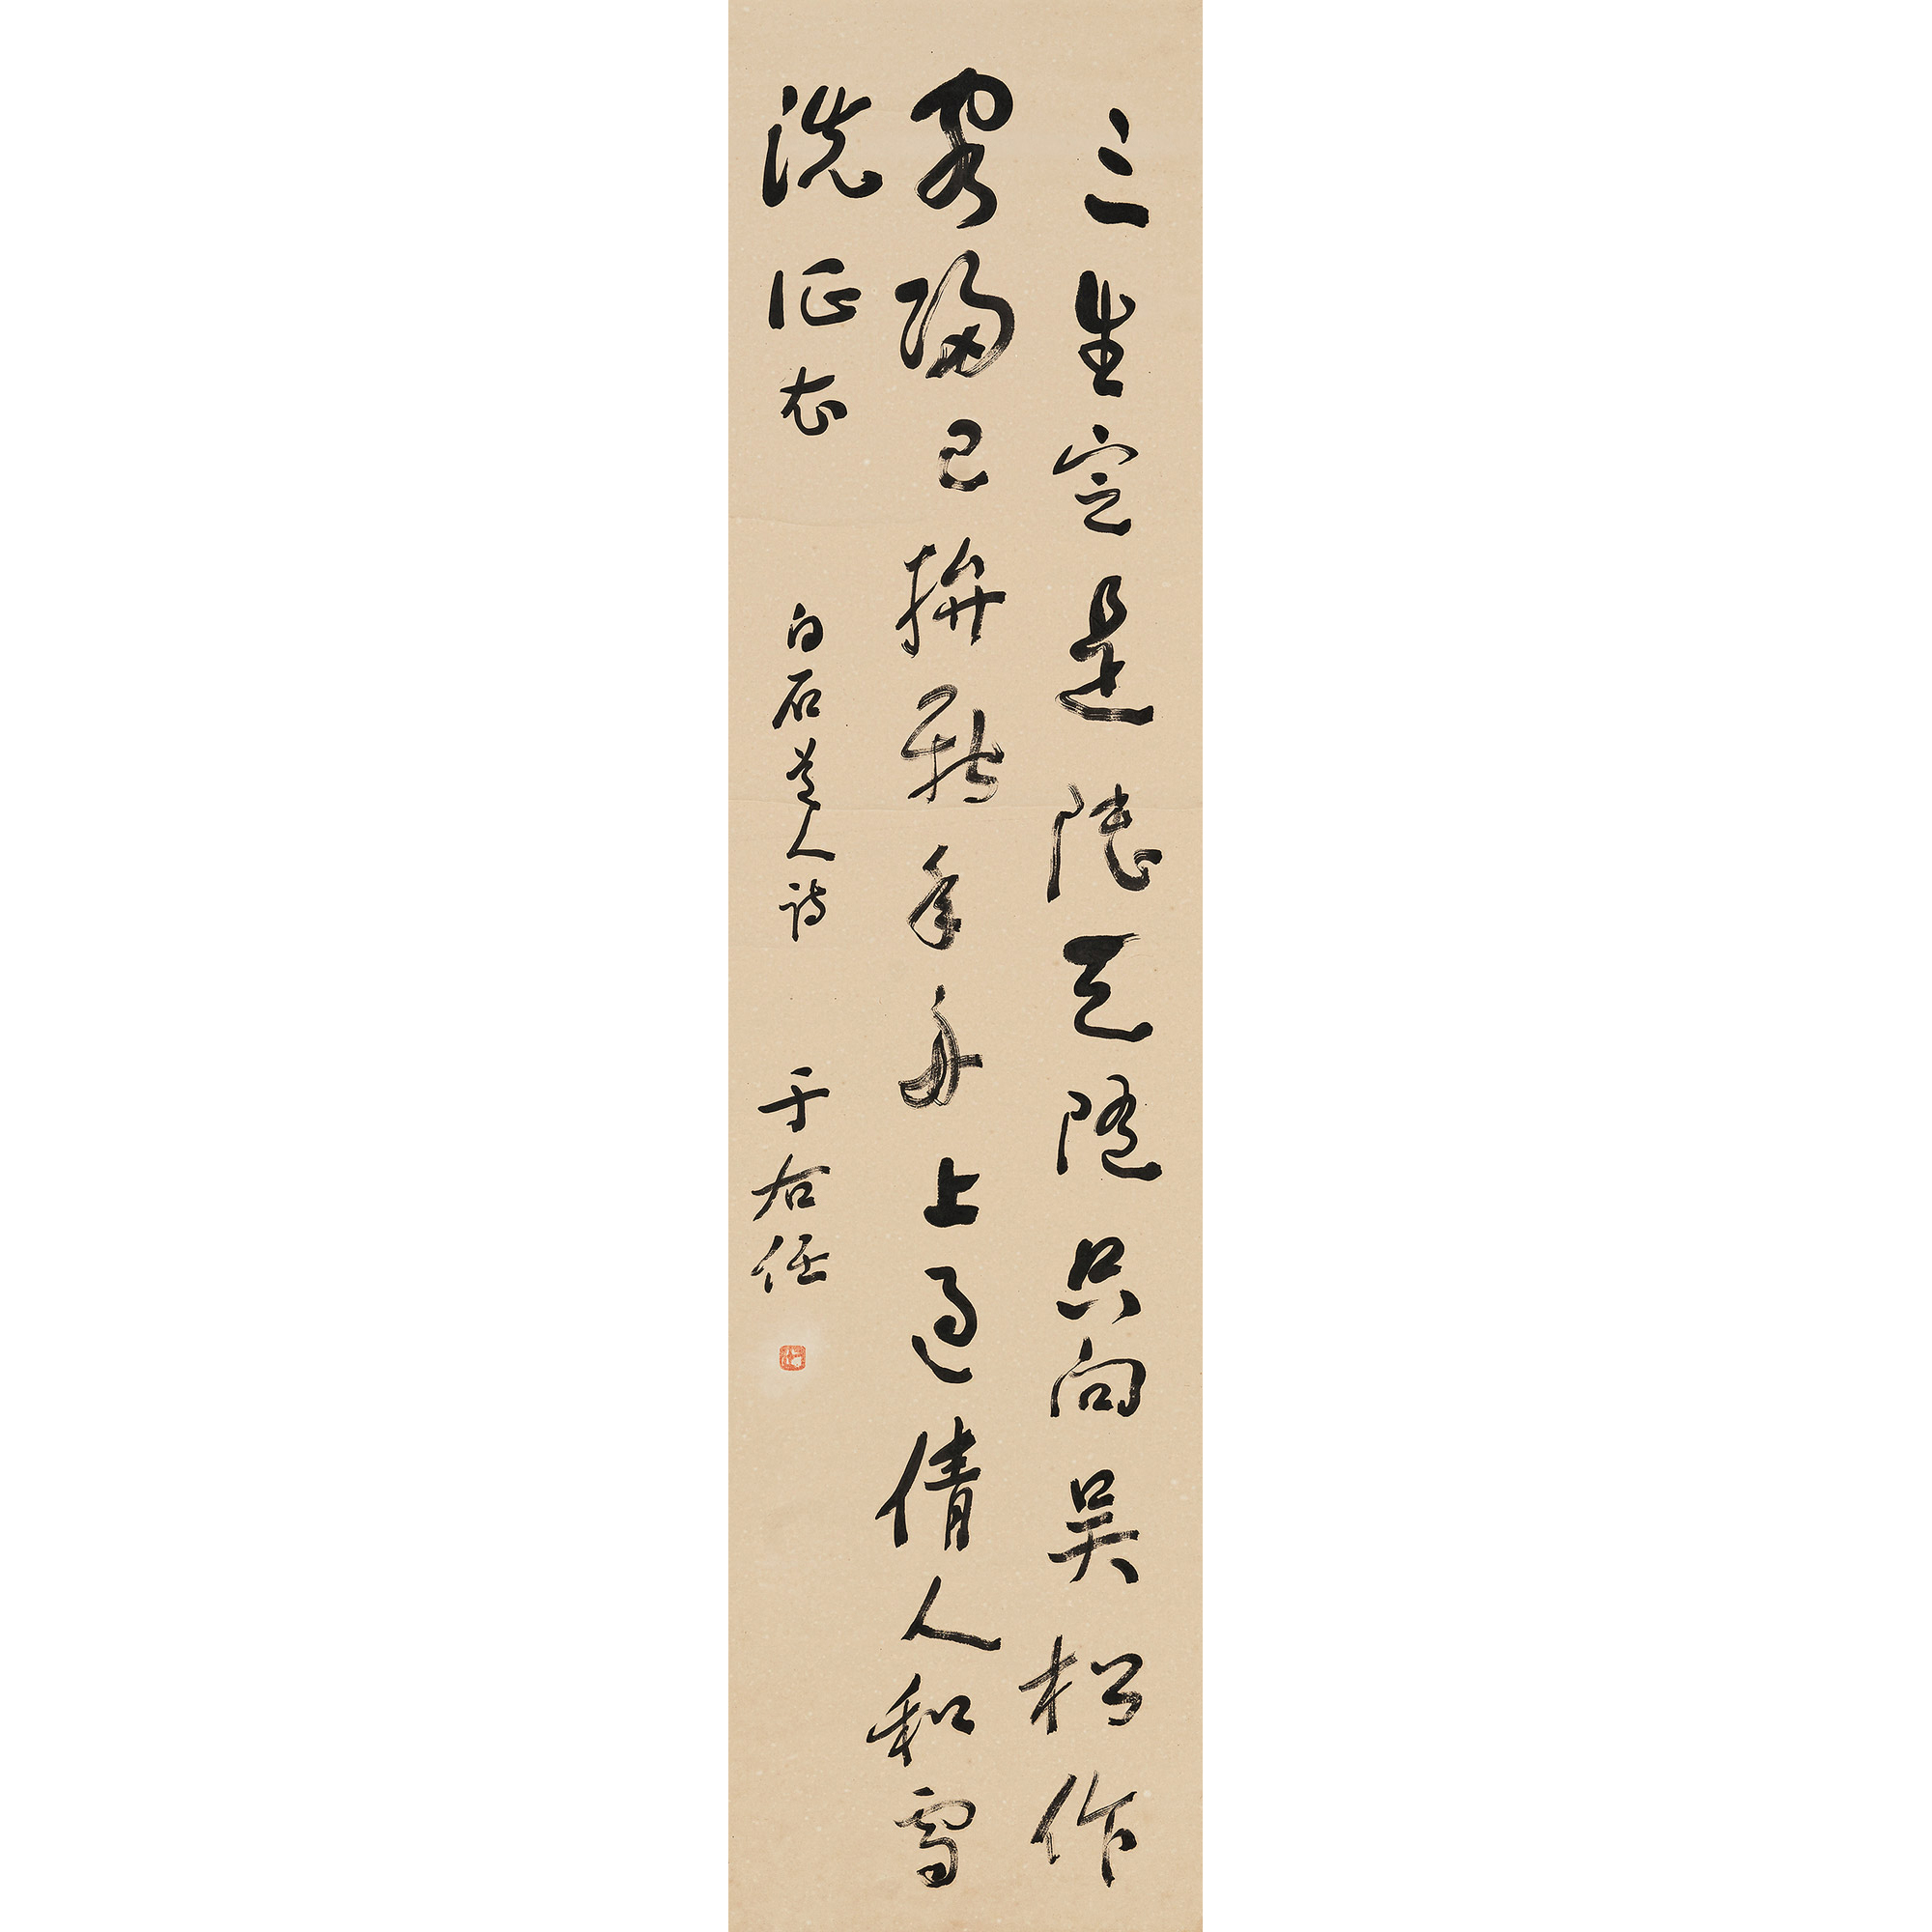 三生定是陸天隨只向吳松作
客歸已拚新年舟上過倩人和雪
洗征衣 白石道人詩 于右任